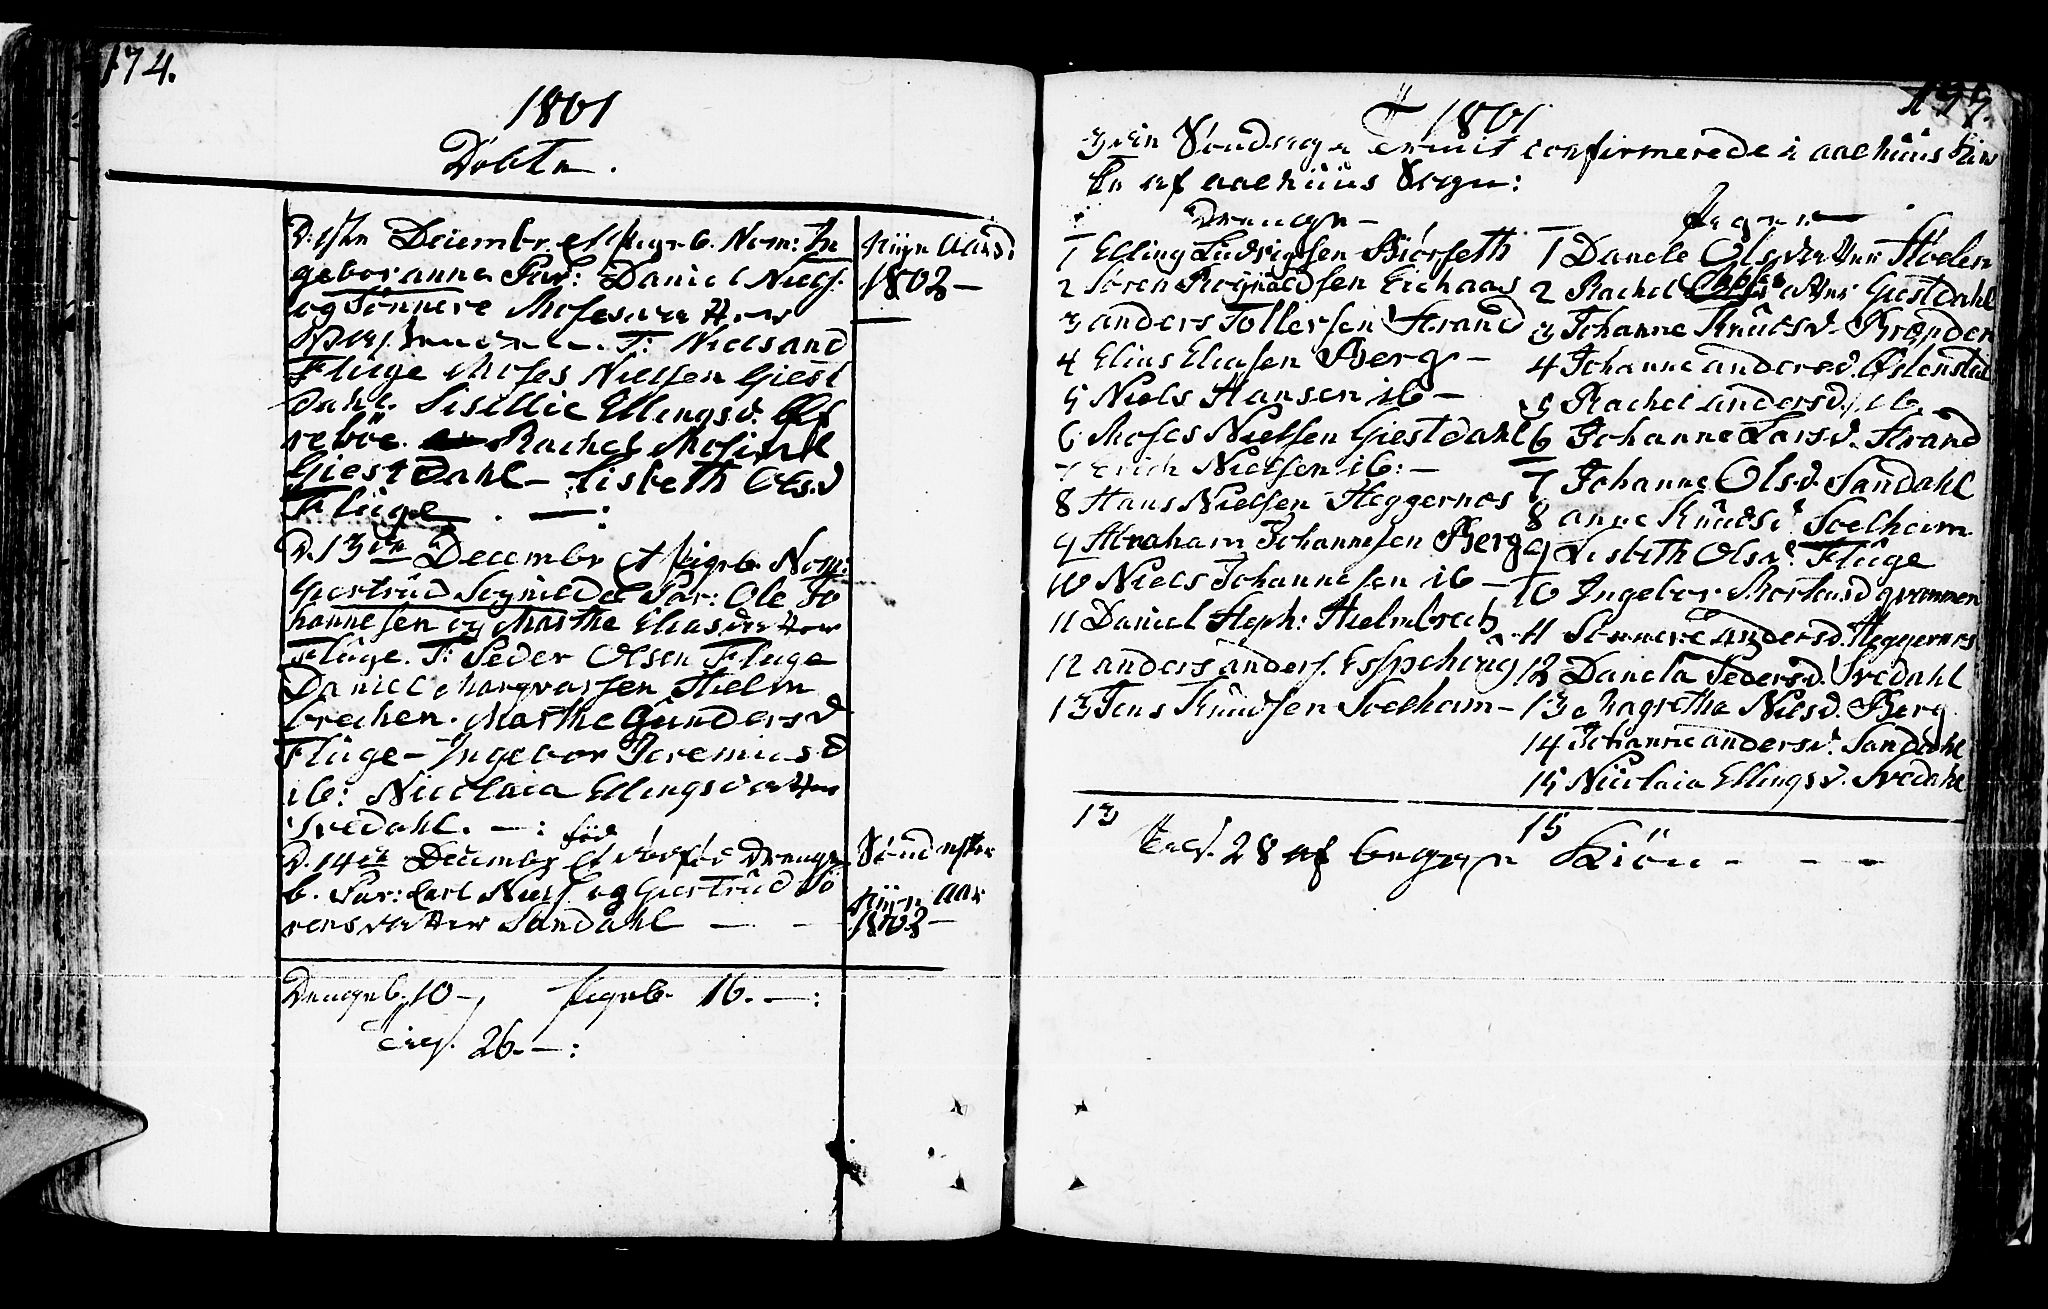 174.
1801
Döbte.
D: 1ste Decembr. et Pigeb. Nom: In
geboranna Par: Daniel Niels.
og Sönnere Mosesdatter
T: Niels and
Fluge Moses Nielsen Giest
dahl. Sisillie Ellingsd. Of
reböe. Rachel Mosisd
Giestdahl – Lisbeth Olsd
Fluge. —:
Nyen Aarsd.
1802 –
D. 13de Decembr et Pigeb. Nom:
Giertrüd Sognilde Par: Ole Jo
hannesen og Marthe Eliasdatter
Fluge. T: Peder Olsen Fluge
Daniel Marqvarsen Hielm
brechen. Marthe Gundersd
Fluge – Ingebor Jeremiasd
ib: Nicolaia Ellingsdatter
Svedahl. —:
D. 14de Decembr et död fød Drenge
b. Par: Carl Niels. og Giertrüd Sö
rensdatter Sandahl — –
Sönd efter
Nyn Aar
1802 –
Drengeb. 10 –, Pigeb. 16. —:
Tils. 26. —:
177.
1801
3die Söndag Trinit confirmerede i Aalhuus Kir
ke af Aalhuus Sogn:
Drenge –
1 Elling Ludvigsen Biörseth
2 Sören Rognaldsen Eichaas
3 Anders Tollersen Strand
4 Elias Eliasen Berg –
5 Niels Hansen ib –
6 Moses Nielsen Giestdahl
7 Erich Nielsen ib: –
8 Hans Nielsen Heggernæs
9 Abraham Johannesen Berg
10 Niels Johannesen ib –
11 Daniel Steph: Hielmbrech
12 Anders Anders. Espehoug
13 Jens Knudsen Soelheim –
Piger –
1 Danele Olsdatter Stöelen
2 Rachel datter Giestdahl
3 Johanne Knudsd. Brænden
4 Johanne Andersd. Østenstad
5 Rachel Andersd. ib.
6 Johanne Larsd. Strand
7 Johanne Olsd. Sandahl
8 Anne Knudsd. Soelheim
9 Lisbeth Olsd. Fluge
10 Ingebor Mortensd qvammen
11 Sönnere Andersd. Heggernæs
12 Danela Pedersd. Svedahl
13 Magretha Nielsd. Berg
14 Johanne Andersd. Sandahl
15 Nicolaia Ellingsd. Svedahl
13 15
Tils. 28 af begge Kiön – – –